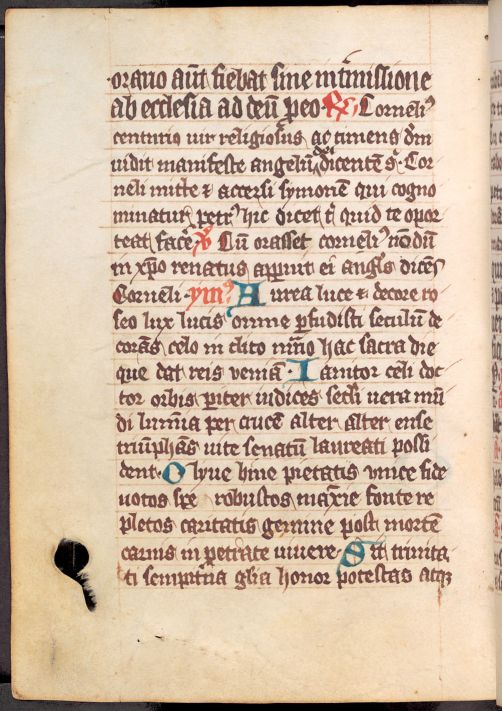 oratio aut̄ fiebat sine int̄missione
ab ecclesia ad deū p̄ eo · R̄ Corneli⁹
centurio uir religiosus ac timens dm̄
uidit manifeste angelū dei dicentē s̄· Cor
neli mitte ⁊ accersi symonē qui cogno
minatur petr⁹ hic dicet t̄ quid te opor
teat facē V̄ Cū orasset corneli⁹ nōdū
in xp̄o renatus apparuit ei angl̄s dicēs
Corneli· ymn⁹ Aurea luce ⁊ decore ro
seo lux lucis omne ꝑfudisti seculū de
corās celo inclito mr̄io hac sacra die
que dat reis veniā· Ianitor celi doc
tor orbis ꝑiter iudices secli uera mū
di lumīa per crucē alter alter ense
triūphās uite senatū laureati possi
dent· Olyue bine pietatis unice fide
uotos spe robustos maxīe fonte re
pletos caritatis gemine post mortē
carnis in petrate uiuere· Sit trinita
ti sempit̄na gl̄ia honor potestas atqꝫ